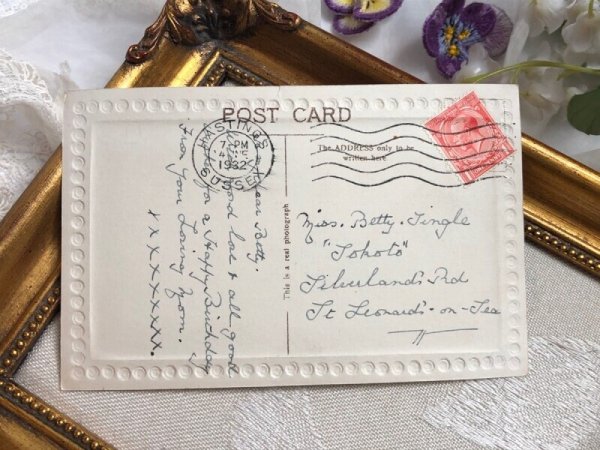 POST CARD
STINGS
7-PM
1932
SUSSEX
The ADDRESS only to be
written here.
This is a real photograph
Dear Betty.
With fond love & all good
wishes for a Happy Birthday
From your Loving Mom.
x x x x x x x x x.
Miss. Betty. Tingle
"Sokoto"
Silverlands Rd
St Leonards-on-Sea